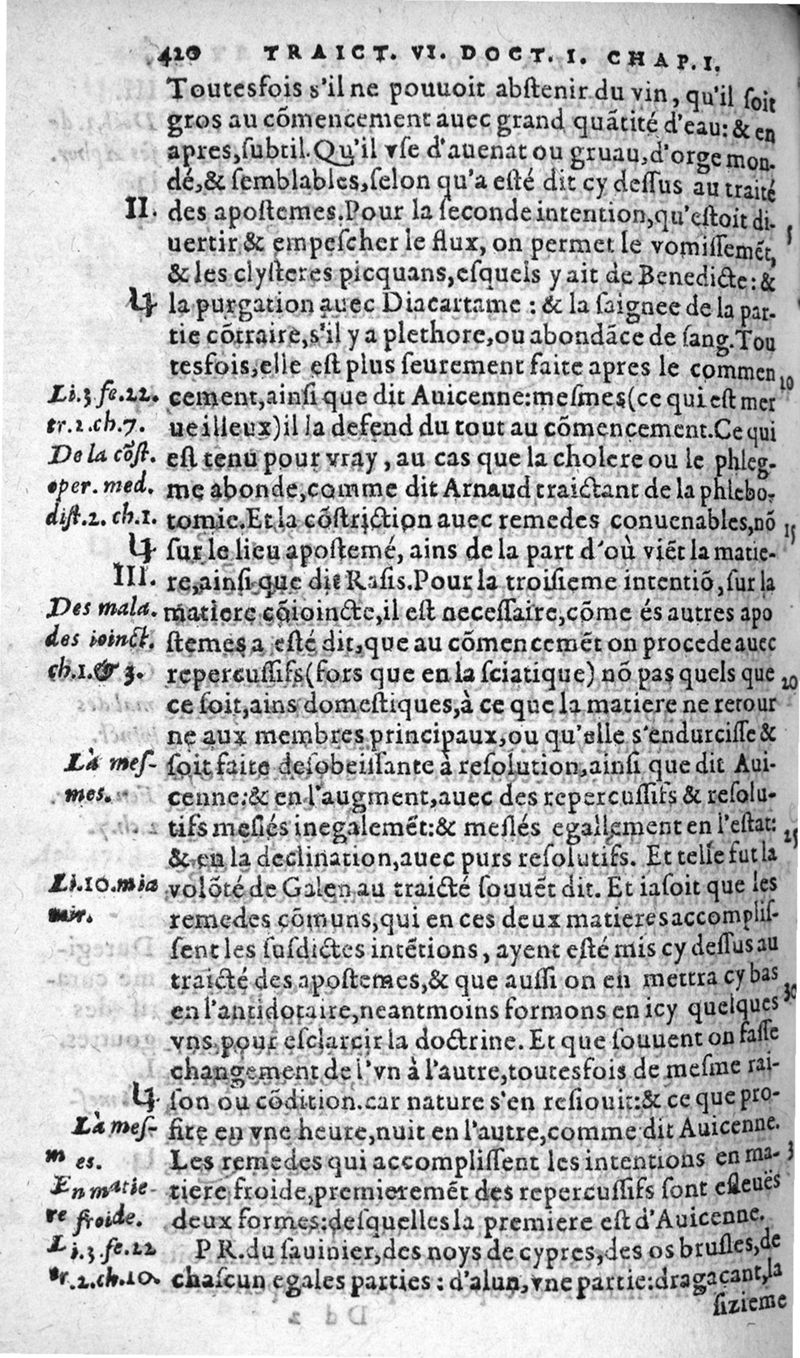 420 TRAICT. VI. DOCT. I. CHAP. I.
Toutesfois s'il ne pouuoit abſtenir du vin, qu'il ſoit
gros au cõmencement auec grand quãtité d'eau: & en
apres,ſubtil. Qu'il vſe d'auenat ou gruau,d'orge mon-
dé,& ſemblables,ſelon qu'a eſté dit cy deſſus au traité
II. des apoſtemes.Pour la ſeconde intention,qu'eſtoit di- 5
uertir & empeſcher le flux, on permet le vomiſſemẽt,
& les clyſteres picquans,eſquels y ait de Benedicte: &
la purgation auec Diacartame : & la ſaignee de la par-
tie cõtraire,s'il y a plethore,ou abondãce de ſang.Tou
tesfois,elle eſt plus ſeurement faite apres le commen 10
Li.3.fe.22. cement,ainſi que dit Auicenne:meſmes(ce qui eſt mer
tr.2.ch.7. ueilleux)il la defend du tout au cõmencement.Ce qui
De la cõſt. eſt tenu pour vray, au cas que la cholere ou le phleg-
oper. med. me abonde,comme dit Arnaud traictant de la phlebo-
diſt.2. ch.1. tomie.Et la cõſtriction auec remedes conuenables,nõ 15
ſur le lieu apoſtemé, ains de la part d'où viẽt la matie-
III. re,ainſi que dit Raſis.Pour la troiſieme intentiõ,ſur la
Des mala. matiere cõioincte,il eſt neceſſaire,cõme és autres apo
des ioinct. ſtemes a eſté dit,que au cõmencemẽt on procede auec
ch.1.& 3. repercuſſifs(fors que en la ſciatique) nõ pas quels que 20
ce ſoit,ains domeſtiques,à ce que la matiere ne retour
ne aux membres principaux,ou qu'elle s'endurciſſe &
Là meſ- ſoit faite deſobeiſſante à reſolution,ainſi que dit Aui-
mes. cenne:& en l'augment,auec des repercuſſifs & reſolu-
tifs meſlés inegalemẽt:& meſlés egallement en l'eſtat: 25
& en la declination,auec purs reſolutifs. Et telle fut la
Li.10.mia volõté de Galen au traicté ſouuẽt dit. Et iaſoit que les
mir. remedes cõmuns,qui en ces deux matieres accompliſ-
ſent les ſuſdictes intẽtions, ayent eſté mis cy deſſus au
traicté des apoſtemes,& que auſſi on en mettra cy bas 30
en l'antidotaire,neantmoins formons en icy quelques
vns pour eſclarcir la doctrine. Et que ſouuent on faſſe
changement de l'vn à l'autre,toutesfois de meſme rai-
ſon ou cõdition.car nature s'en reſiouit:& ce que pro-
Là meſ- fite en vne heure,nuit en l'autre,comme dit Auicenne.
mes. Les remedes qui accompliſſent les intentions en ma-
En matie- tiere froide,premieremẽt des repercuſſifs ſont eſleués
re froide. deux formes:deſquelles la premiere eſt d'Auicenne.
Li.3.fe.22 PR.du ſauinier,des noys de cypres,des os bruſles,de
tr.2.ch.10. chaſcun egales parties : d'alun,vne partie:dragaçant,la
ſizieme